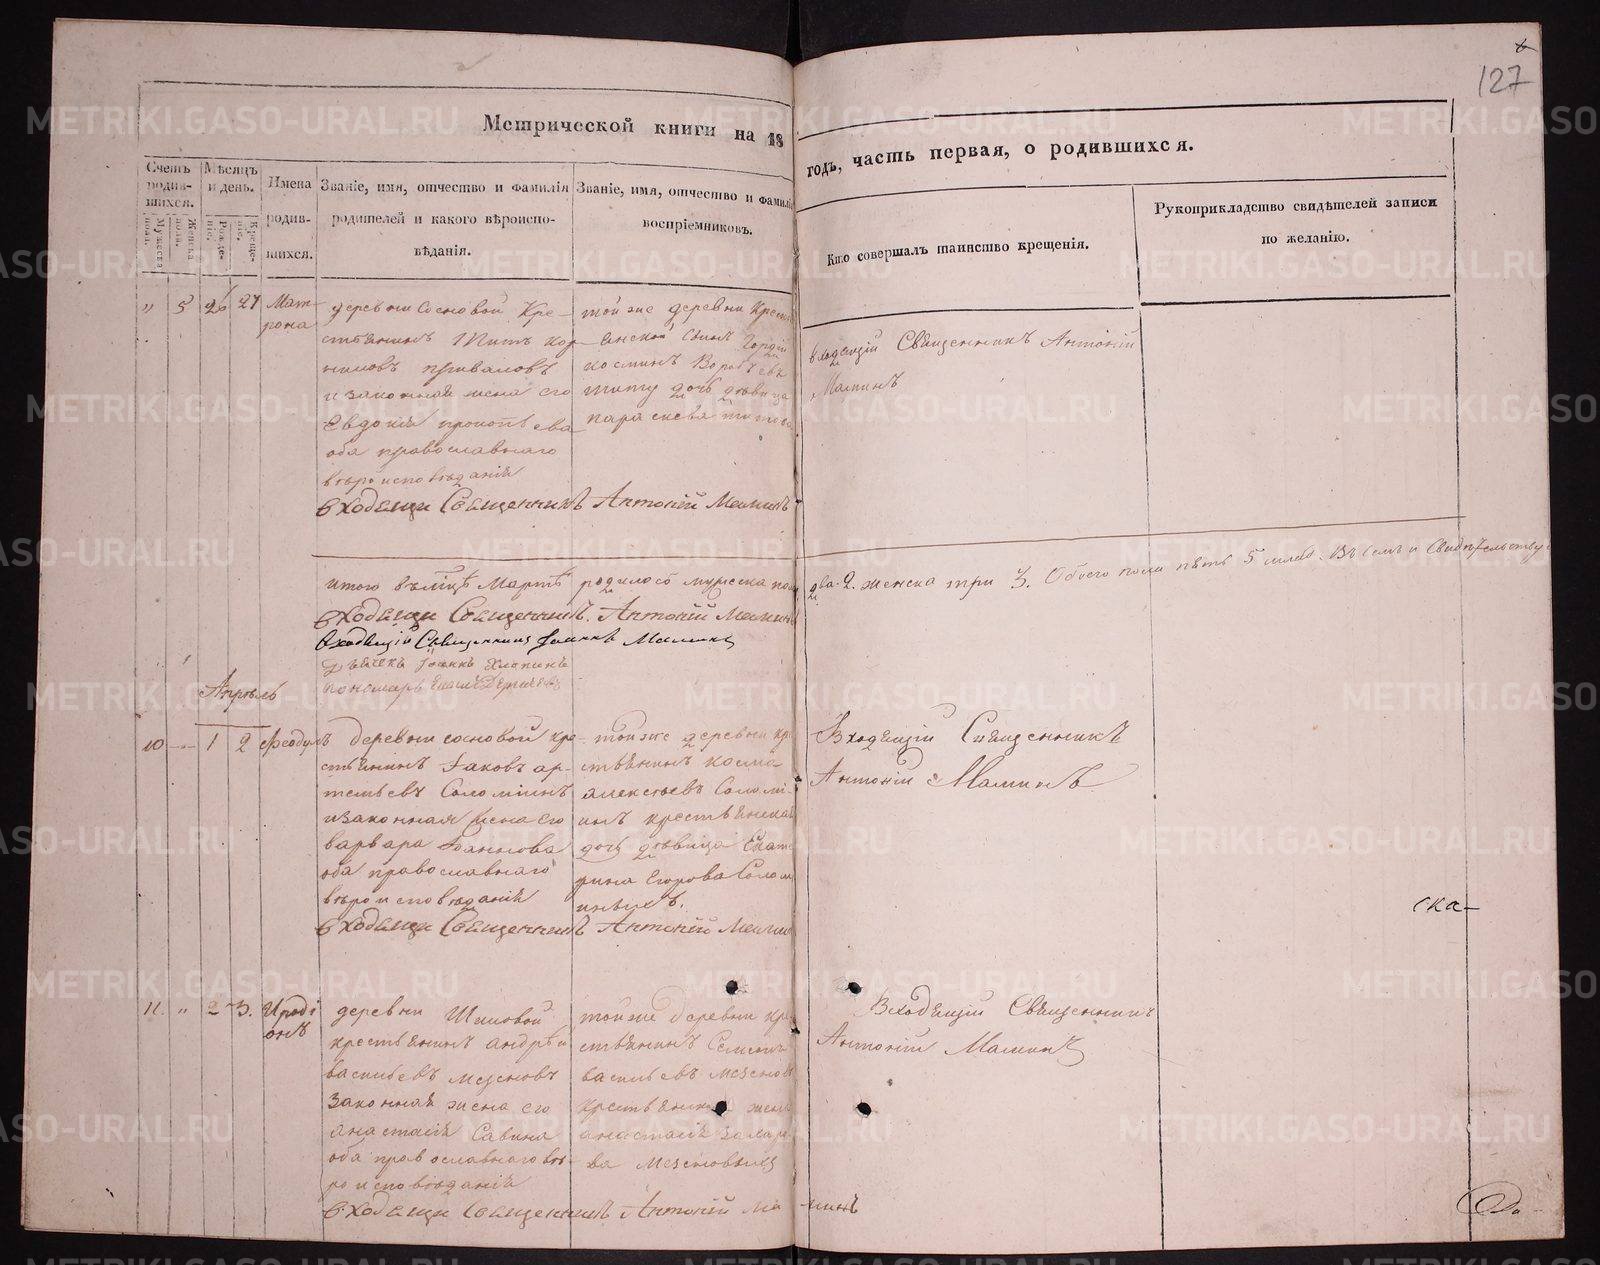 127
Метрической книги на 18
годъ, часть первая, о родившихся.
Счетъ родив-шихся.
Мужеска пола.
Женска пола.
Мѣсяцъ и день.
Рожде-нія.
Креще-нія.
Имена родив-шихся.
Званіе, имя, отчество и фамилія
родителей и какого вѣроиспо-
вѣданія.
Званіе, имя, отчество и фамилія
воспріемниковъ.
Кто совершалъ таинство крещенія.
Рукоприкладство свидѣтелей записи
по желанію.
" 5 26 27 Мат-
рона
деревни Сосновой Кре-
стьянинъ Титъ Кор-
ниловъ Приваловъ
и законная жена его
Евдокія Прокопьева
оба православнаго
вѣроисповѣданія
той же деревни Кресть
янской сынъ Гордій
Косминъ Воробьевъ
Титу дочь дѣвица
Параскева Титова
Входящій Священникъ Антоній
Маминъ
Входящи Священникъ Антоній Маминъ
итого въ мцѣ Мартѣ родилось мужеска пол
два. 2. женска три 3. Обоего пола пять 5 млад. Въ семъ и Свидѣтельству
Входящи Священникъ. Антоній Мамин
Входящій Священникъ Іоаннъ Маминъ
Дьячекъ Іоаннъ Хлопинъ
пономарь
Апрѣль
10 - " - 1 2 Феодулъ
деревни сосновой кре-
стьянинъ Іаковъ Ар-
темьевъ Соломинъ
и законная жена его
варвара Іоаннова
оба православнаго
вѣроисповѣданія
той же деревни кре
стьянинъ косма
алексѣевъ Соломи
инъ крестьянская
дочь дѣвица Екате
рина Егорова Солом
иныхъ.
Входящій Священникъ
Антоній Маминъ
Входящи Священникъ Антоній Мамин
ска-
11. " 2 3. Иродi
онъ
деревни Шиловой
крестьянинъ андрѣй
васильевъ Мезеновъ
законная жена его
анастасія Савина
оба православнаго вѣ-
роисповѣданія
той же деревни кре
стьянинъ Семенъ
васильевъ Мезенов
крестьянская жена
анастасія Захаро
ва Мезеновыхъ
Входящій Священникъ
Антоній Маминъ
Входящи Священникъ Антоній Маминъ
METRIKI.GASO-URAL.RU